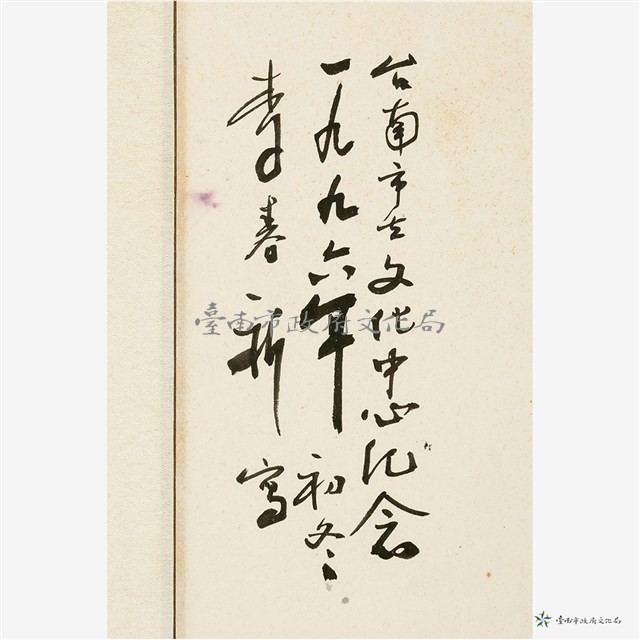 台南市立文化中心纪念
一九九六年初冬
李春新寫
臺南市政府文化局
臺南市政府文化局